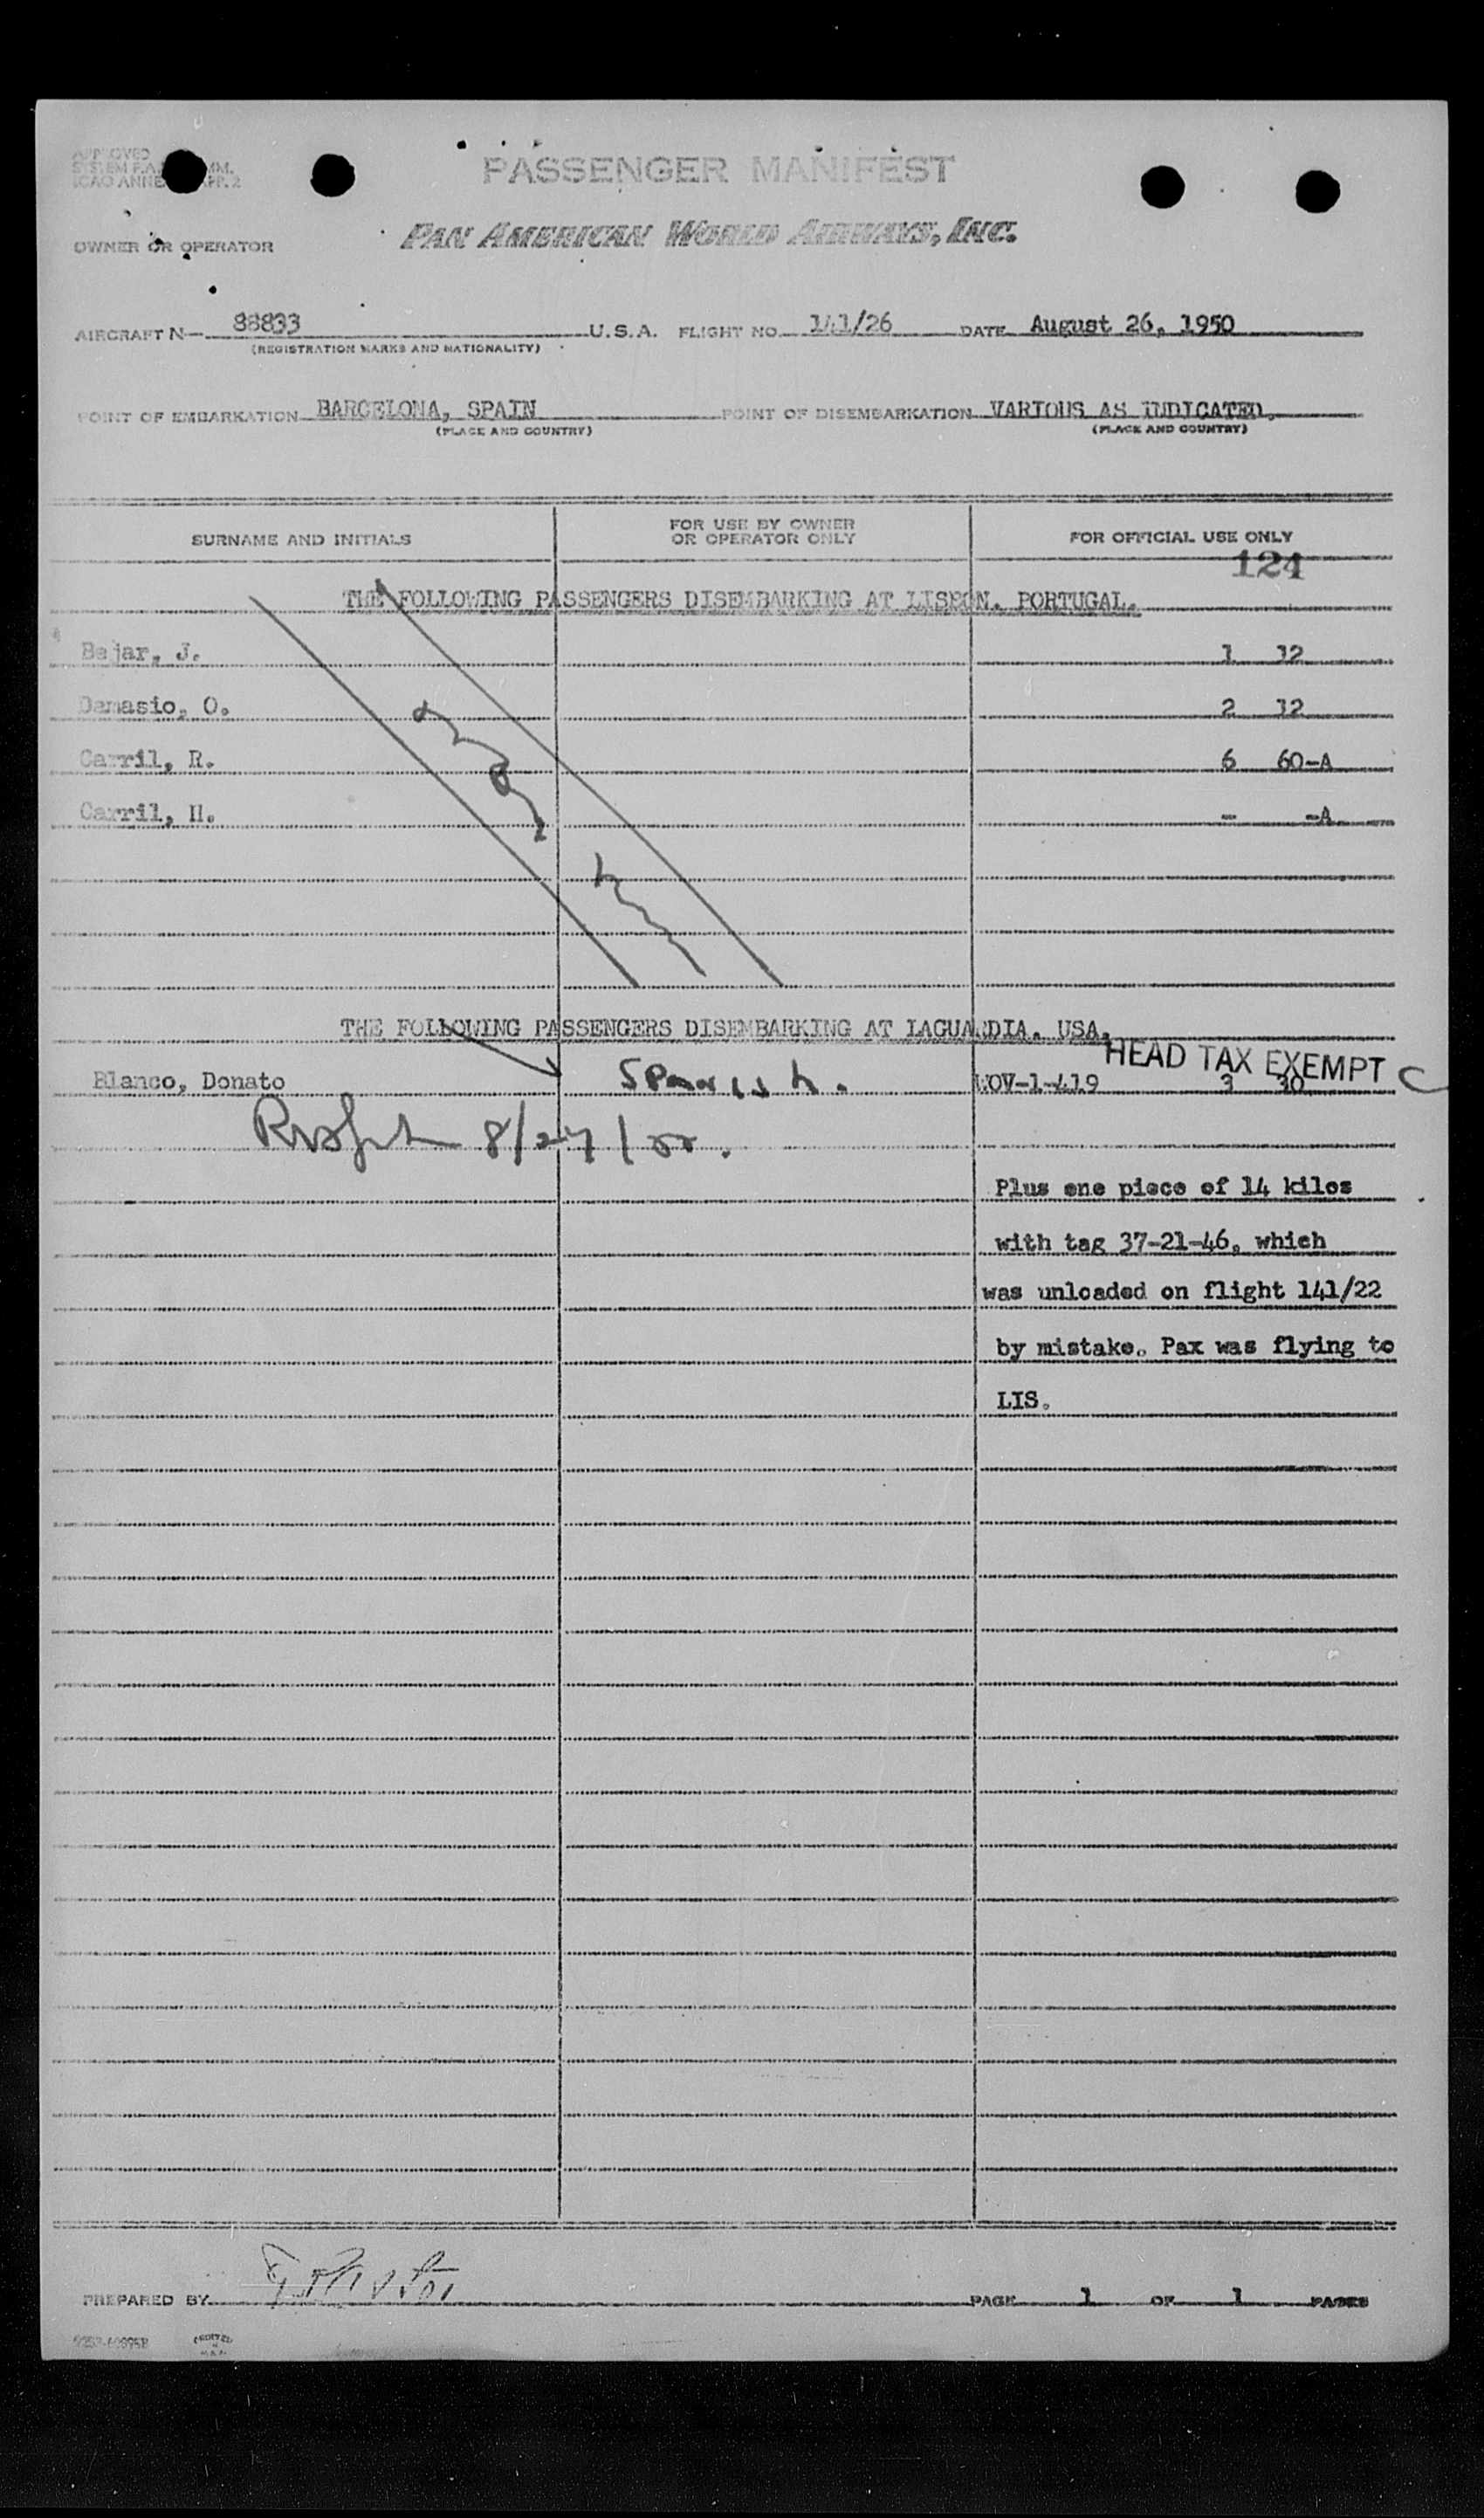 APPROVED
PASSENGER MANIFEST
OWNER OR OPERATOR
PAN AMERICAN WORLD AIRWAYS, INC.
AIRCRAFT N— 88833 U.S.A. FLIGHT NO. 141/26 DATE August 26, 1950
(REGISTRATION MARKS AND NATIONALITY)
POINT OF EMBARKATION BARCELONA, SPAIN POINT OF DISEMBARKATION VARIOUS AS INDICATED.
(PLACE AND COUNTRY) (PLACE AND COUNTRY)
SURNAME AND INITIALS FOR USE BY OWNER OR OPERATOR ONLY FOR OFFICIAL USE ONLY
124
THE FOLLOWING PASSENGERS DISEMBARKING AT LISBON. PORTUGAL.
Bejar, J. 1 12
Damasio, O. 2 12
Carril, R. 6 60-A
Carril, H. - -A
THE FOLLOWING PASSENGERS DISEMBARKING AT LAGUARDIA. USA.
HEAD TAX EXEMPT
Blanco, Donato Spanish. 3 30
8/27/50.
Plus one piece of 14 kilos
with tag 37-21-46, which
was unloaded on flight 141/22
by mistake. Pax was flying to
LIS.
PREPARED BY PAGE 1 OF 1 PAGES